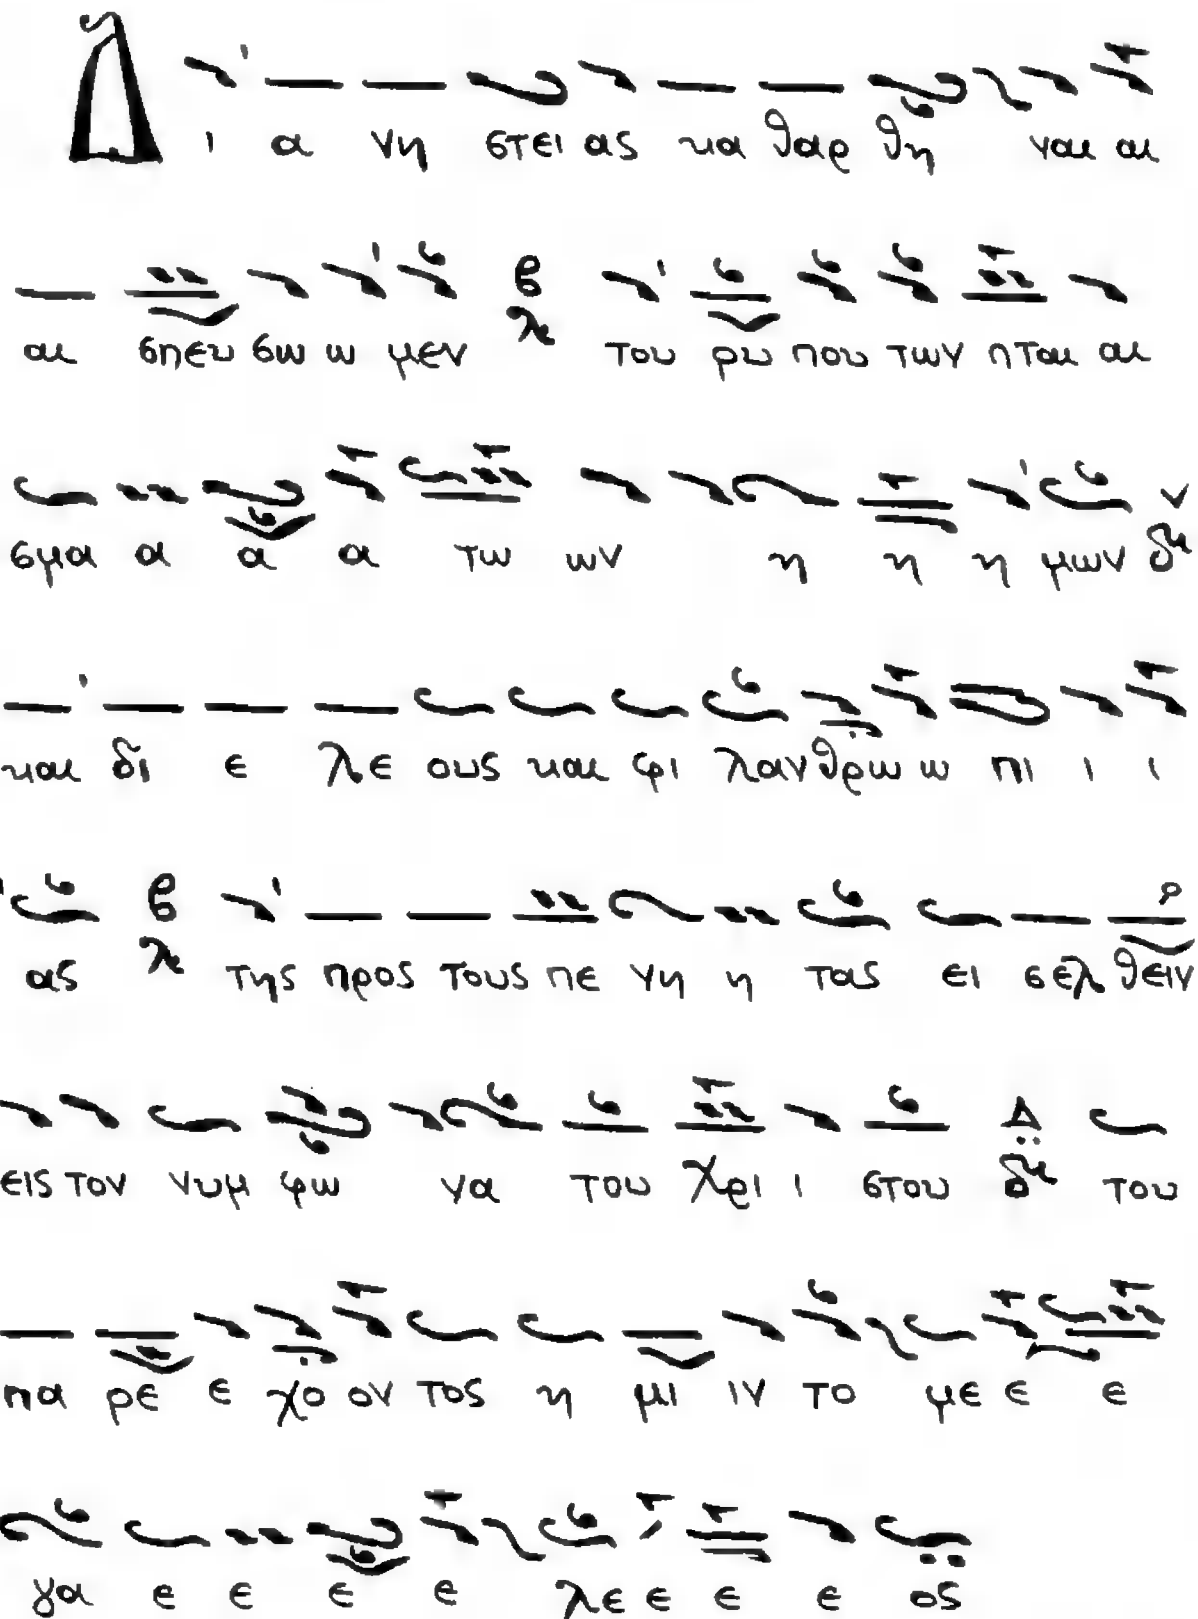 Δ ι α νη στει ας κα θαρ θη ναι αι
αι σπευ σω ω μεν του ρω που των πται αι
σμα α α α τω ων η η η μων
και δι ε λε ους και φι λαν θρω ω πι ι ι
ας της προς τους πε νη η τας ει σελ θειν
εις τον νυμ φω να του Χρι ι στου Δ του
πα ρε ε χο ον τος η μι ιν το με ε ε
γα ε ε ε ε λε ε ε ε ος